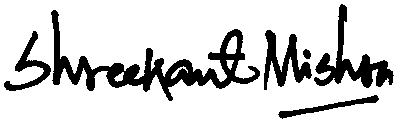 Shreekant Mishra